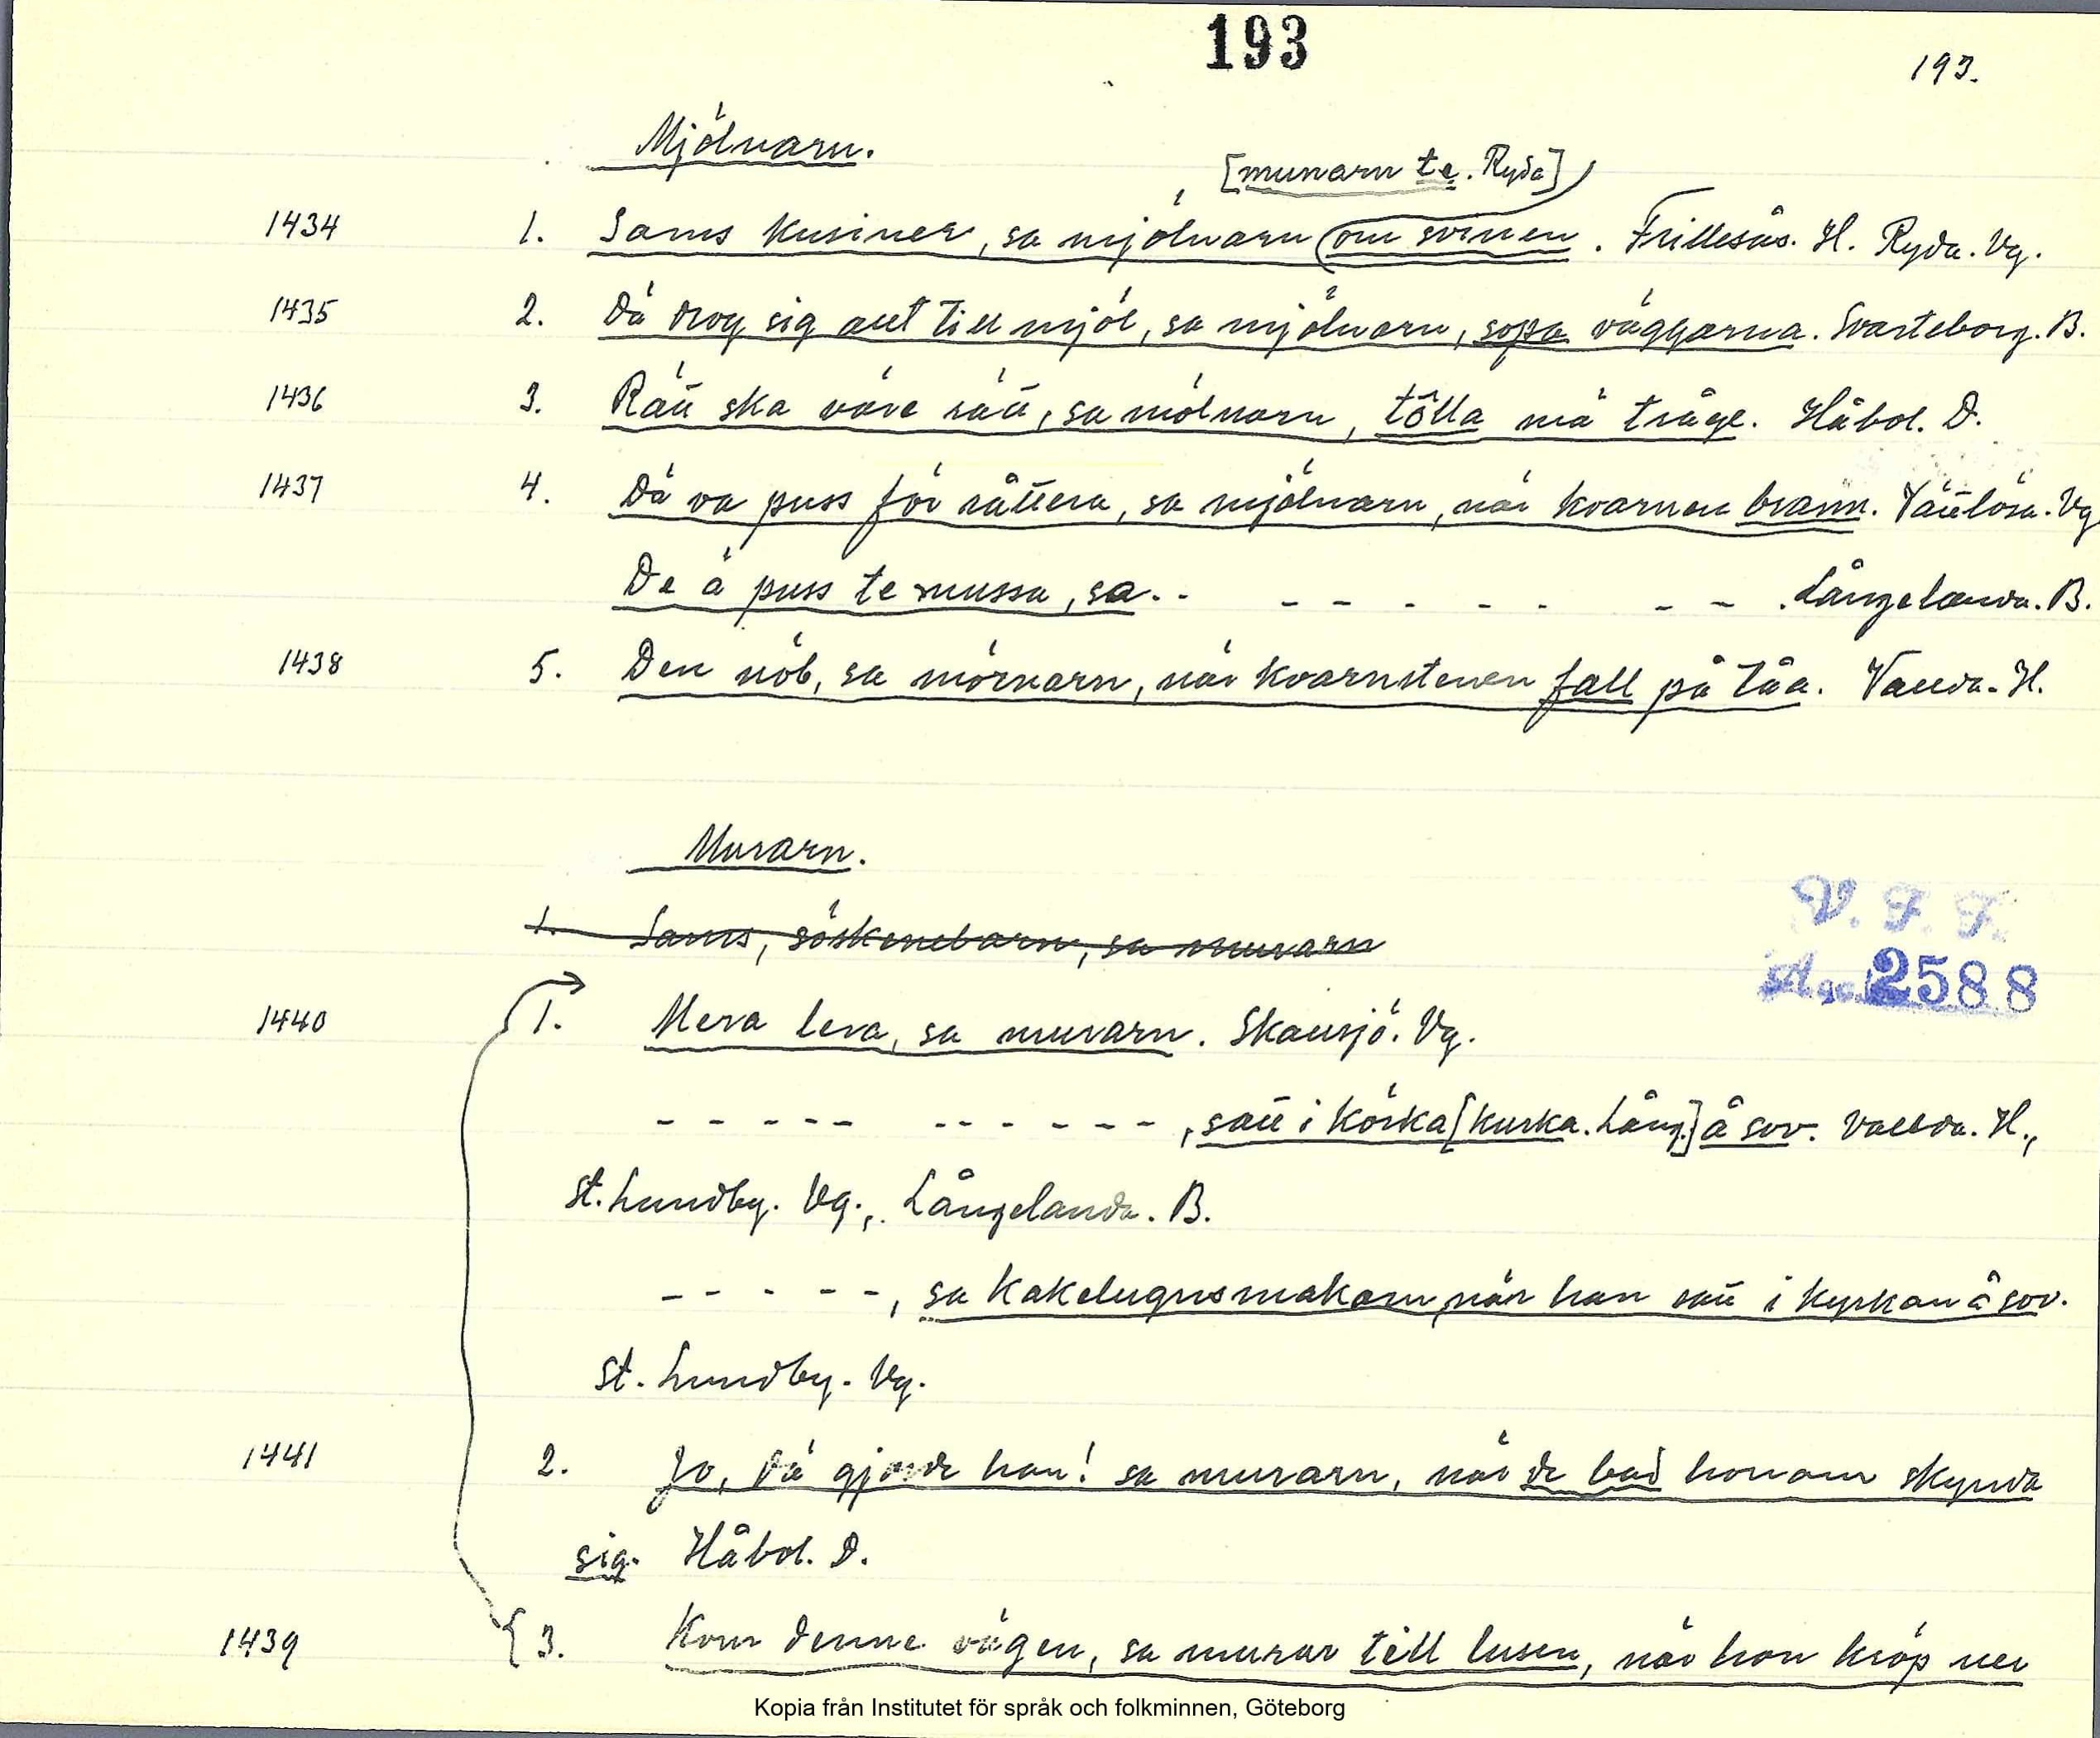 193
193.
Mjölnarn.
[munarn te. Ryda]
1434 1. Sams kusiner, sa mjölnarn om svinen. Frillesås. H. Ryda. Vg.
1435 2. Dä drog sig allt till mjöl, sa mjölnarn, sopa väggarna. Svarteborg. B.
1436 3. Rätt ska väre rätt, sa mölnarn, tölla mä tråge. Håbol. D.
1437 4. Dä va puss för råttera, sa mjölnarn, när kvarnen brann. Vättlösa. Vg
De ä puss te mussa, sa. - - - - - - - - - . Långelanda. B.
1438 5. Den nöb, sa mörnarn, när kvarnstenen fall på tåa. Vallda. H.
Murarn.
1. Sams, söskenebarn, sa murarn
V. F. F.
2588
1440 1. Mera lera, sa murarn. Skallsjö. Vg.
- - - - - - - - - - -, satt i körka [kurka. Lång.] å sov. Vallda. H.,
St. Lundby. Vg., Långelanda. B.
- - - - -, sa kakelugnsmakarn, när han satt i kyrkan å sov.
St. Lundby. Vg.
1441 2. Jo, dä gjorde han! sa murarn, när de bad honom skynda
sig. Håbol. D.
1439 3. Kom denne vägen, sa murar till lusen, när hon kröp ner
Kopia från Institutet för språk och folkminnen, Göteborg